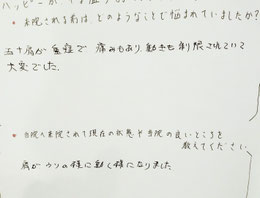 ・来院される前は、どのようなことで悩まれていましたか？
五十肩が重症で 痛みもあり、動きも制限されていて
大変でした。
・当院へ来院されて現在の状態や当院の良いところを
教えてください。
肩がウソの様に動く様になりました